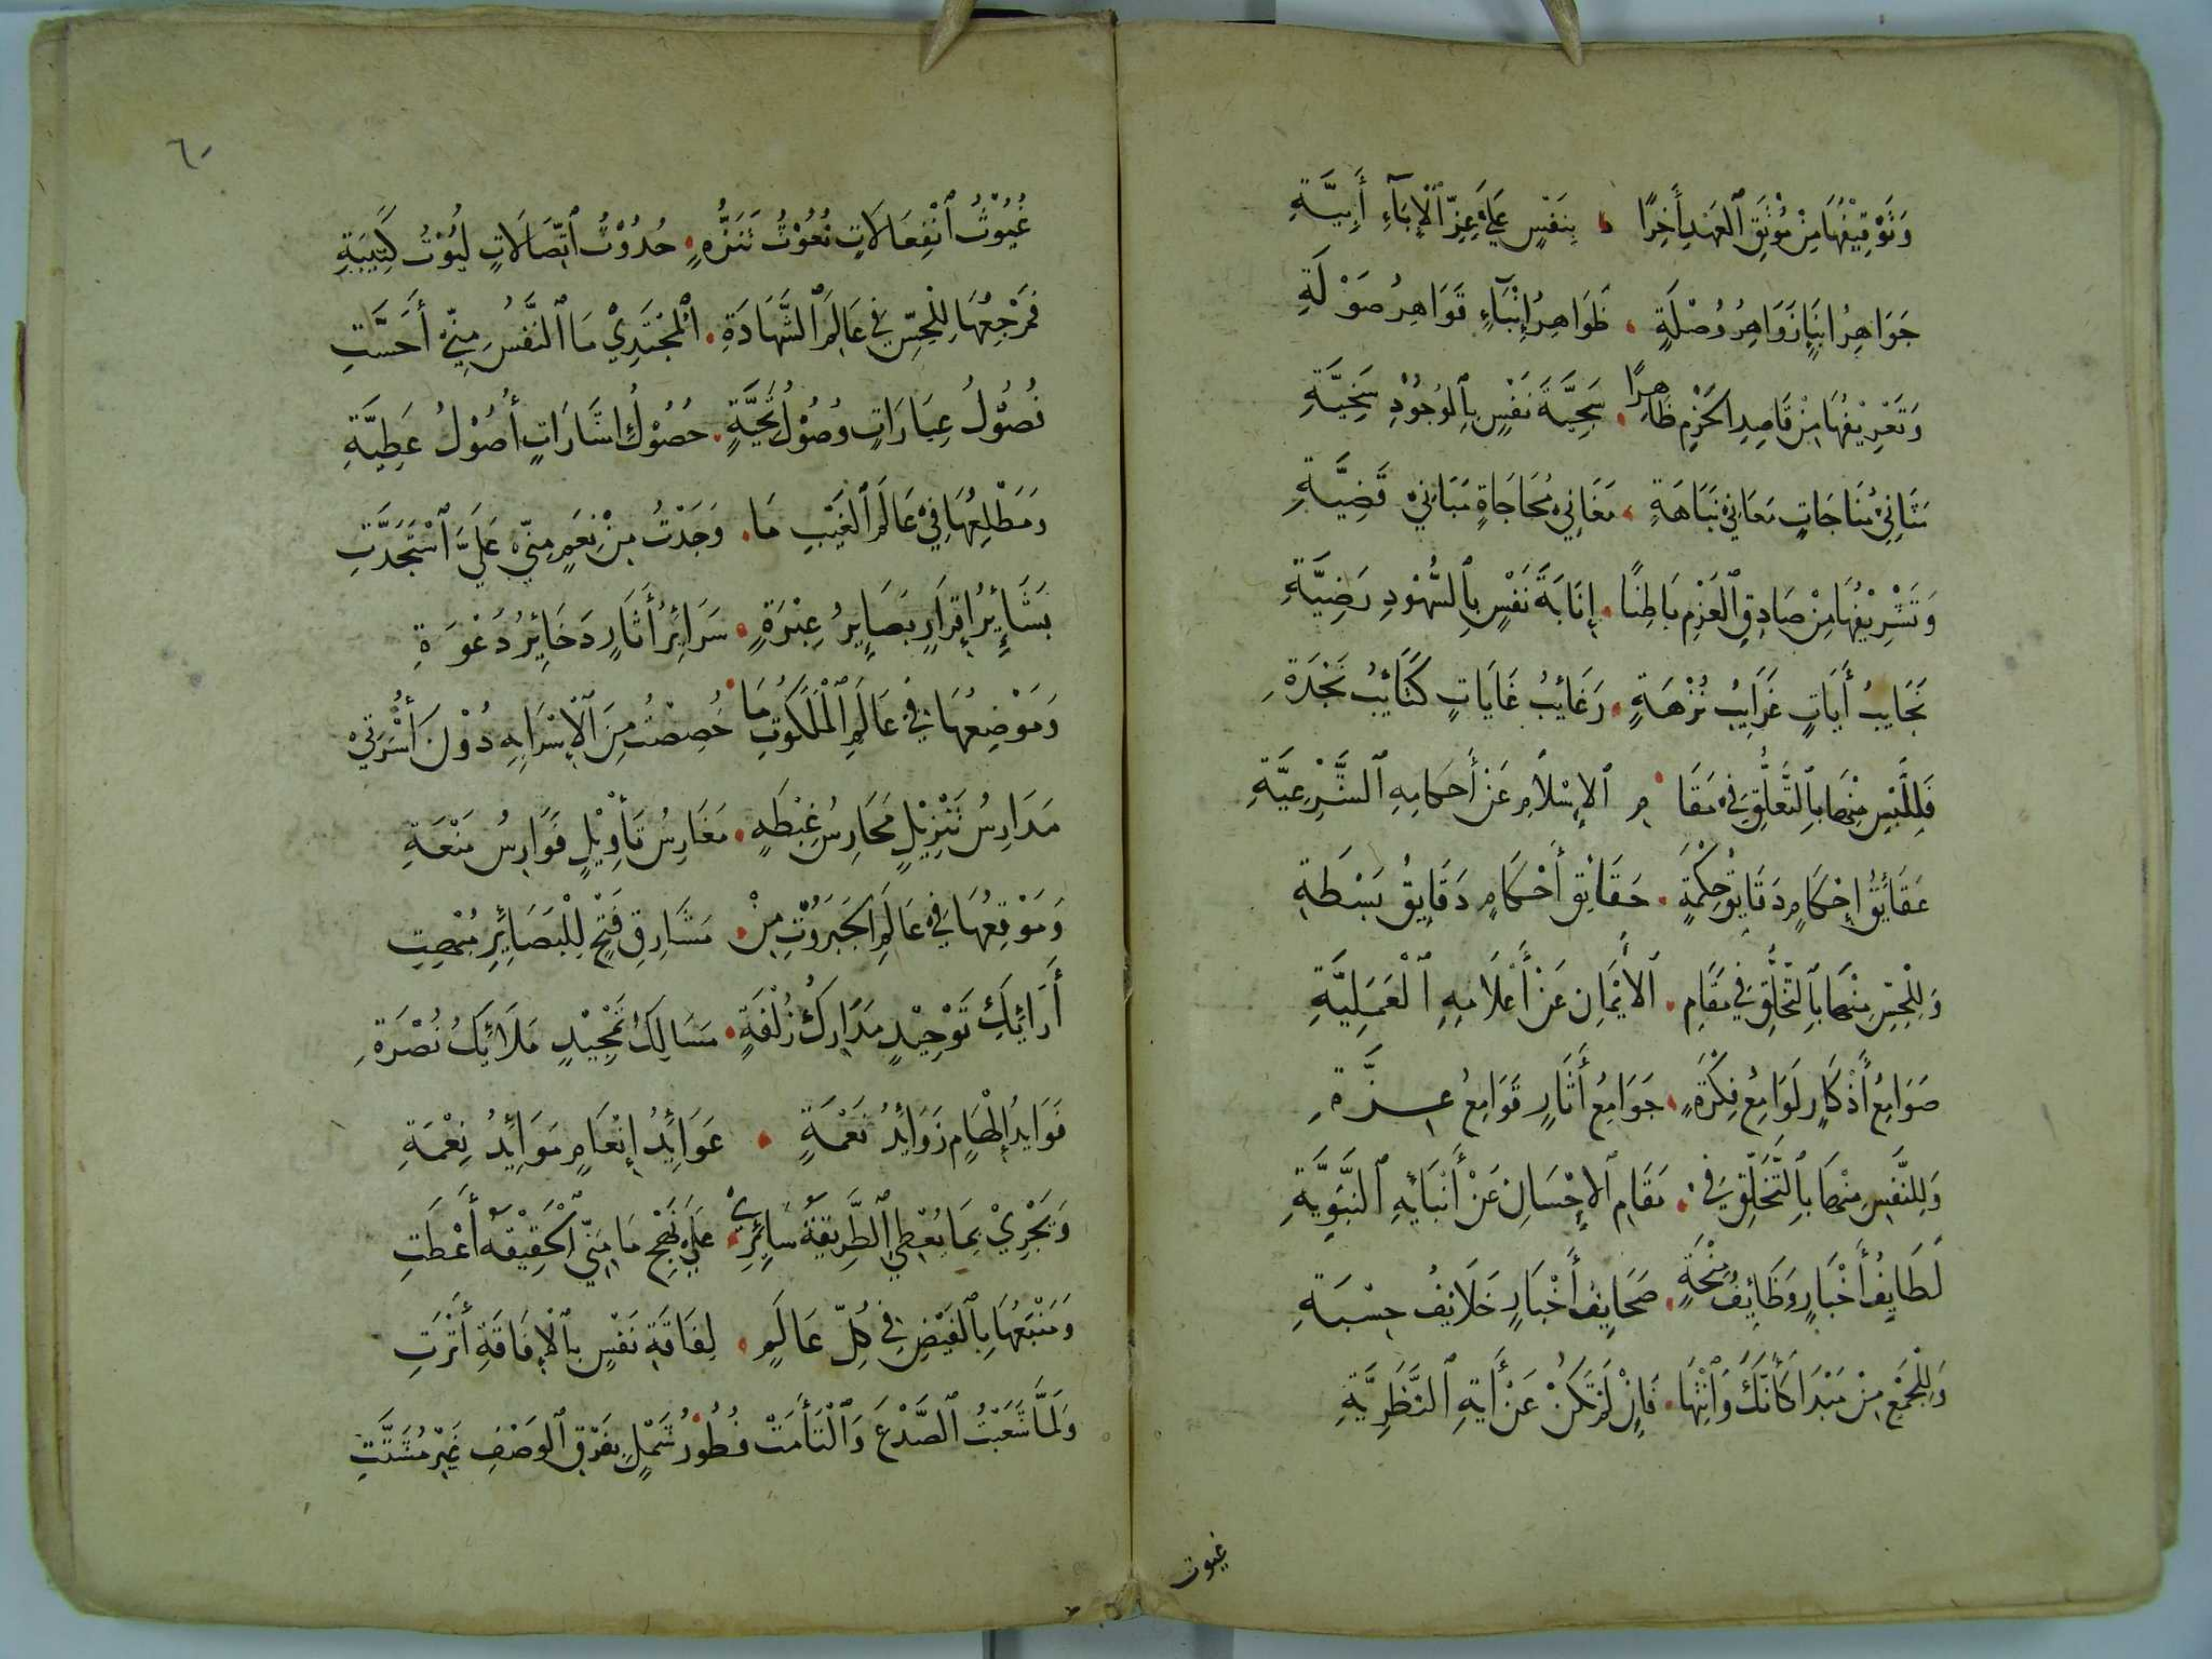 وَتَوْقِيْفُهَا مِنْ مُوْثَقِ ٱلْعَهْدِ أَخِرًا ، بِنَفْسٍ عَلَيْ عِزِّ ٱلْإِبَآءِ أَبِيَّةِ
جَوَاهِرُ انْبَاءٍ زَوَاهِرُ وُصْلَةٍ . ظَوَاهِرُ إِنْبَآءٍ قَوَاهِرُ صَوْلَةِ
وَتَعْرِيْفُهَا مِنْ قَاصِدِ الحَزْمِ ظَاهِرًا . سَجِيَّةَ نَفْسٍ بِٱلوُجُوْدِ سَخِيَّةِ
مَثَانِيْ مُنَاجَاتٍ مَعَانِيْ نَبَاهَةٍ ، مَغَانِيْ مُحَاجَاةٍ مَبَانِيْ قَضِيَّةِ
وَتَشْرِيْفُهَا مِنْ صَادِقِ ٱلْعَزْمِ بَاطِنًا . إِنَابَةَ نَفْسٍ بِٱلشُّهُوْدِ رَضِيَّةِ
نَجَايِبُ أَيَاتٍ غَرَايِبُ نُزْهَةٍ . رَغَائِبُ غَايَاتٍ كَتَائِبُ نَجْدَةِ
فَلِلَّبْسِ مِنْهَا بِٱلتَّعَلُّقِ فِيْ مَقَا . مِ ٱلإِسْلَامِ عَنْ أَحكَامِهِ ٱلشَّرْعِيَّةِ
عَقَائِقُ إِحْكَامٍ دَقَايِقُ حِكْمَةٍ . حَقَائِقُ أَحْكَامٍ دَقَايِقُ بَسْطَةِ
وَلِلْحِسِّ مِنْهَا بِٱلتَّخَلُّقِ فِي مَقَامِ . ٱلأَيْمَانِ عَنْ أَعْلَامِهِ ٱلْعَمَلِيَّةِ
صَوَامِعُ أَذْكَارٍ لَوَامِعُ فِكْرَةٍ ، جَوَامِعُ أَثَارٍ قَوَامِعُ عِزَّةِ
وَلِلنَّفْسِ مِنْهَا بِٱلتَّخَلُّقِ فِيْ . مَقَامِ ٱلإِحْسَانِ عَنْ أَنْبَائِهِ ٱلنَّبَوِيَّةِ
لَطَايِفُ أَخْبَارٍ وَظَايِفُ مِنْحَةٍ . صَحَايِفُ أَخْبَارٍ خَلَائِفُ حِسْبَةِ
وَلِلْجَمْعِ مِنْ مَبْدَا كَأَنَّكَ وَٱنْتِهَا . فَإِنْ لَمْ تَكُنْ عَنْ أَيَةِ ٱلنَّظَرِيَّةِ
غيوث
٦٠
غُيُوْثُ ٱنْفِعَالَاتٍ بُعُوْثُ تَنَزُّهٍ . حُدُوْثُ ٱتِّصَالَاتٍ لُيُوْثُ كَتِيْبَةِ
فَمَرْجِعُهَا لِلْحِسِّ فِي عَالَمِ ٱلشَّهَادَةِ . ٱلْمُجْتَدِيْ مَا ٱلنَّفْسُ مِنِّيْ أَحَسَّتِ
فُصُوْلُ عِبَارَاتٍ وُصُوْلُ تَحِيَّةٍ . حُصُوْلُ اشَارَاتٍ أُصُوْلُ عَطِيَّةِ
وَمَطْلِعُهَا فِيْ عَالَمِ ٱلْغَيْبِ مَا . وَجَدْتُ مِنْ نِعَمٍ مِنِّيْ عَلَيَّ ٱسْتَجَدَّتِ
بَشَائِرُ إِقْرَارٍ بَصَايِرُ عِبْرَةٍ . سَرَائِرُ أَثَارٍ دَخَائِرُ دَعْوَةِ
وَمَوْضِعُهَا فِيْ عَالَمِ ٱلْمَلَكُوْتِ مَا . خُصِصْتُ مِنَ ٱلْإِسْرَا بِهِ دُوْنَ أُسْرَتِيْ
مَدَارِسُ تَنْزِيْلٍ مَحَارِسُ غِبْطَةٍ . مَغَارِسُ تَأْوِيْلٍ فَوَارِسُ مَنْعَةِ
وَمَوْقِعُهَا فِيْ عَالَمِ الجَبَرُوْتِ مِنْ . مَشَارِقِ فَتْحٍ لِلْبَصَائِرِ مُبْهِتِ
أَرَائِكُ تَوْحِيْدٍ مَدَارِكُ زُلْفَةٍ . مَسَالِكُ تَمْجِيْدٍ مَلَائِكُ نُصْرَةِ
فَوَايِدُ إِلْهَامٍ زَوَايِدُ نَعْمَةٍ . عَوَائِدُ إِنْعَامٍ مَوَائِدُ نِعْمَةِ
وَيَجْرِيْ بِمَا يُعْطِي ٱلطَّرِيْقَةَ سَائِرِيْ ، عَلَيْ نَهْجِ مَا مِنِّي ٱلْحَقِيْقَةُ أَعْطَتِ
وَمَنْبَعُهَا بِٱلْفَيْضِ فِي كُلِّ عَالَمٍ . لِفَاقَةِ نَفْسٍ بِٱلْإِفَاقَةِ أَثْرَتِ
وَلَمَّا شَعَبْتُ ٱلصَّدْعَ وَٱلْتَأَمَتْ فُطُوْرُ شَمْلٍ بِفَرْقِ ٱلْوَصْفِ غَيْرِ مُشَتَّتِ